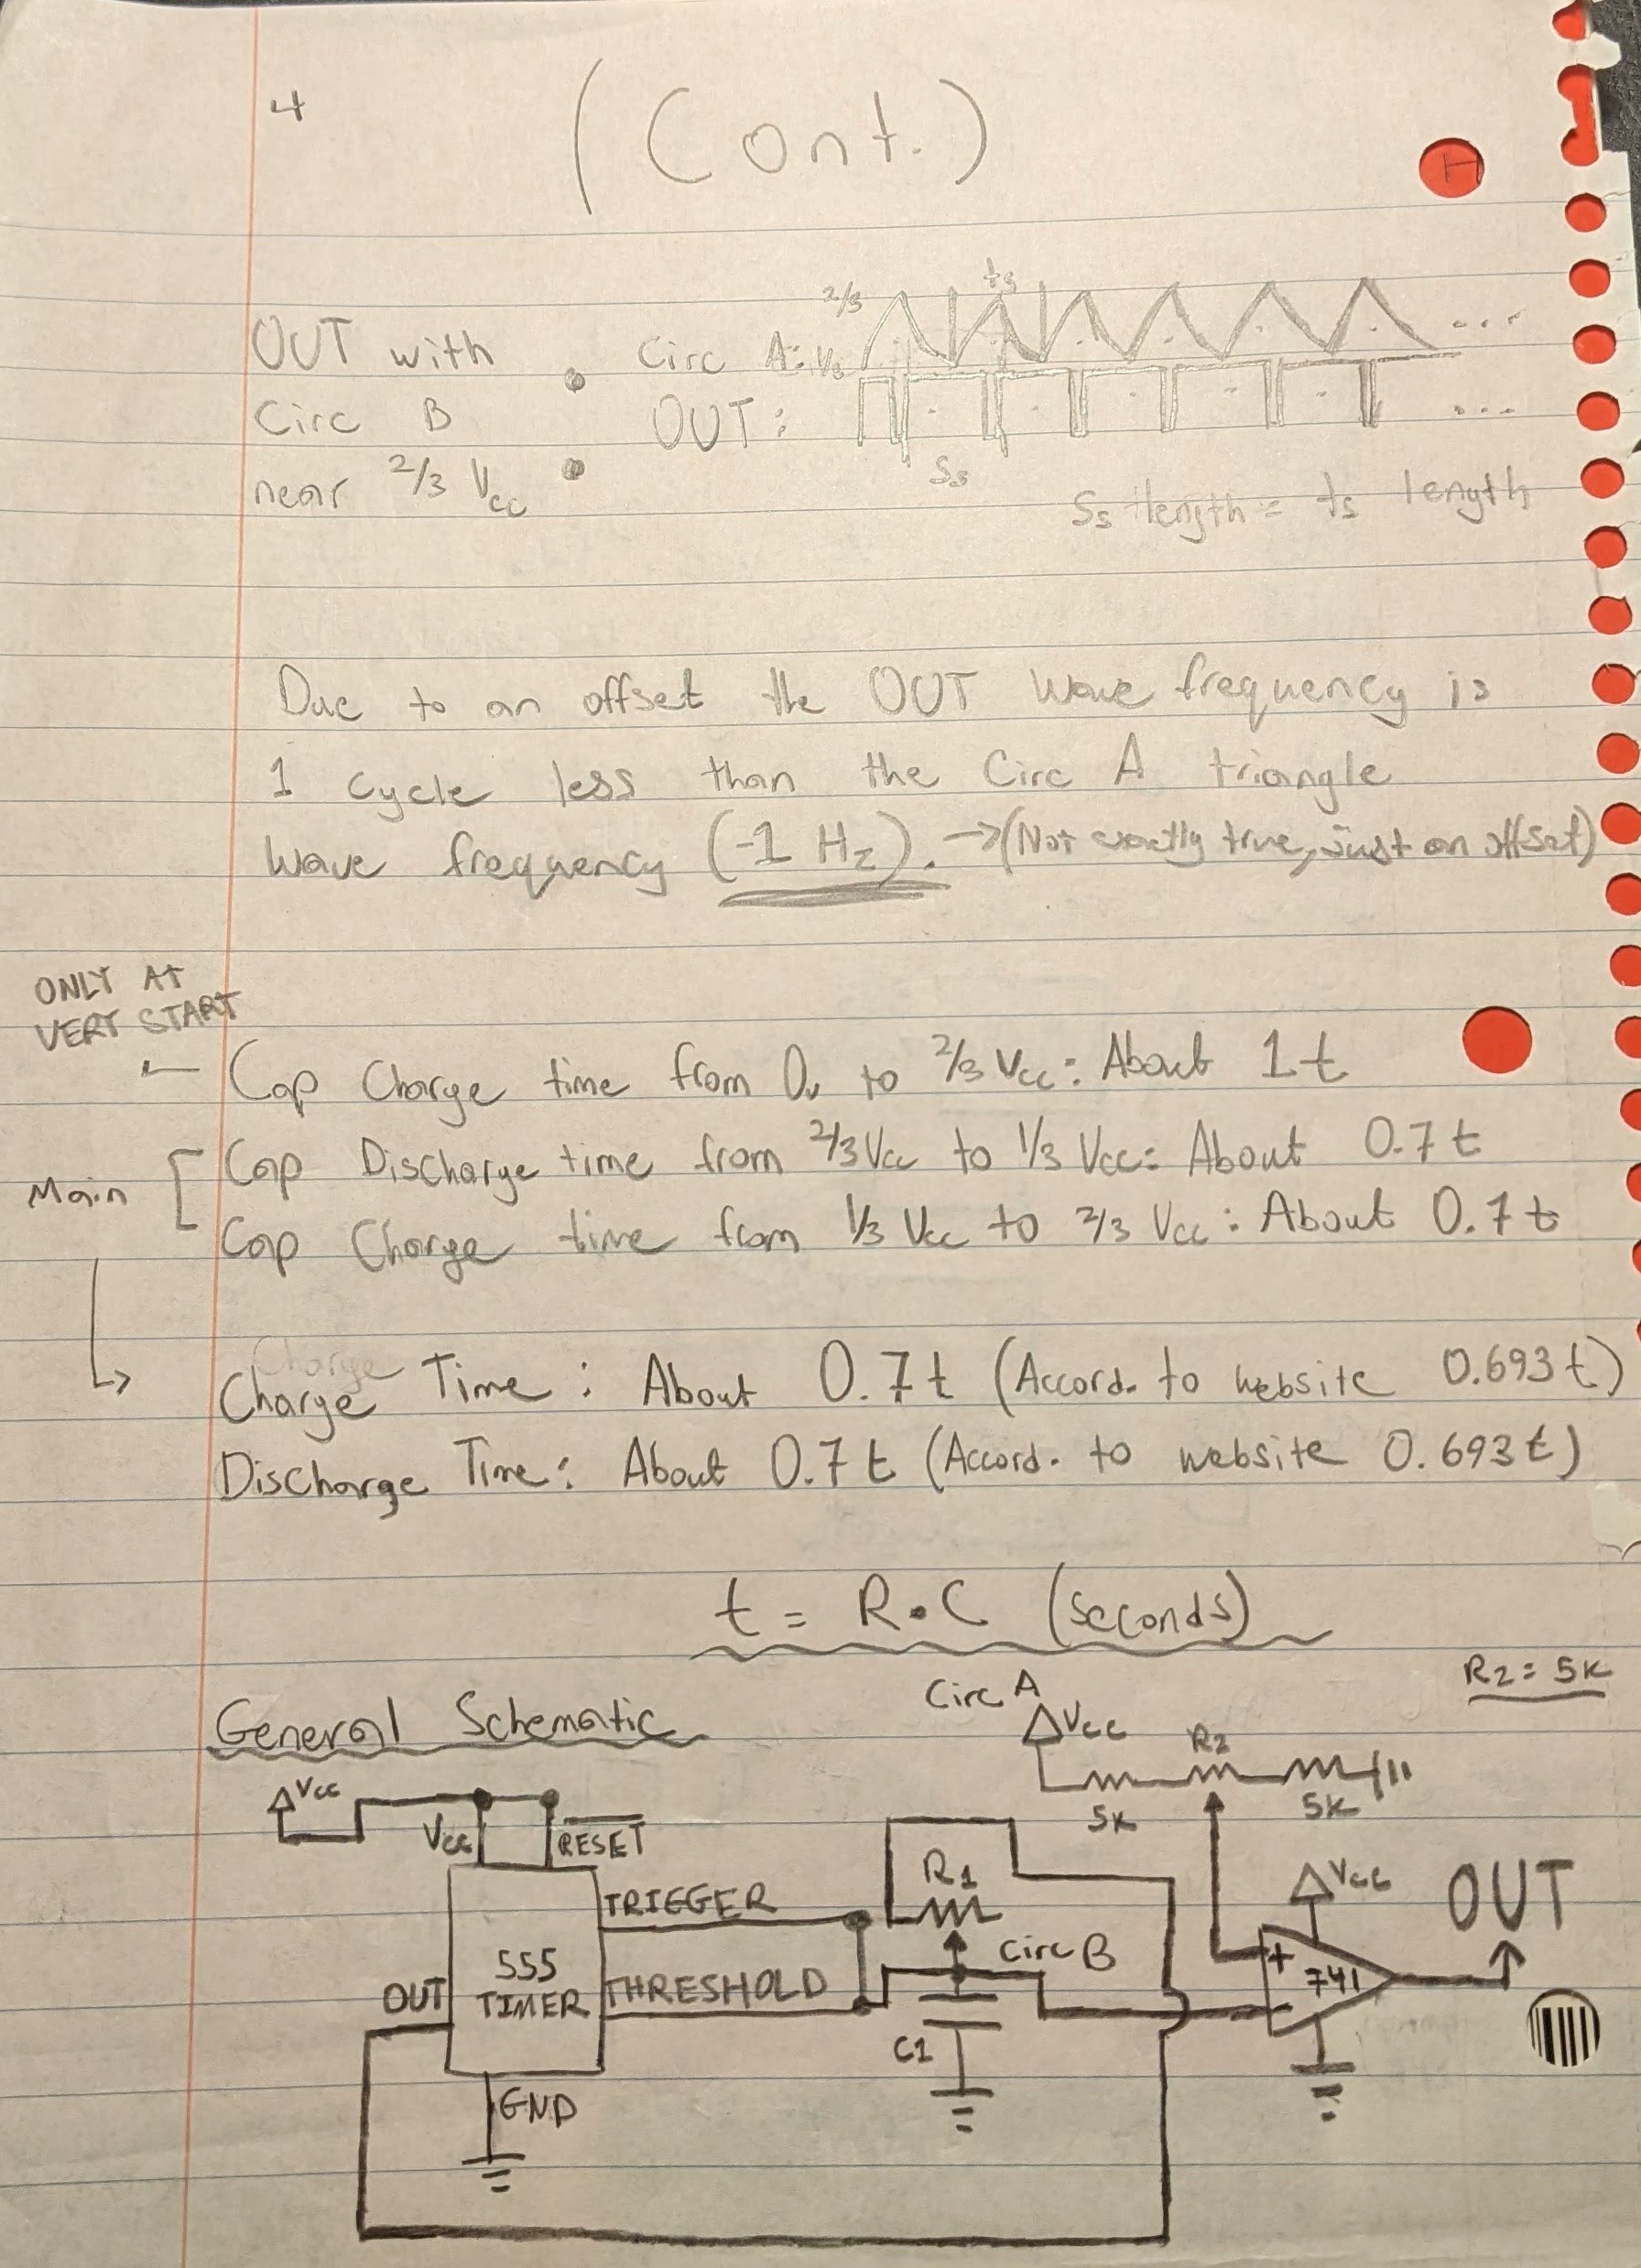 4
(Cont.)
H
OUT with
Circ B
near 2/3 Vcc
2/3
ts
Circ A: 1/3
...
OUT:
...
Ss
Ss length = ts length
Due to an offset the OUT wave frequency is
1 cycle less than the Circ A triangle
wave frequency (-1 Hz). →(Not exactly true, just an offset)
ONLY AT
VERT START
← Cap Charge time from 0v to 2/3 Vcc: About 1t
Main [ Cap Discharge time from 2/3 Vcc to 1/3 Vcc: About 0.7t
Cap Charge time from 1/3 Vcc to 2/3 Vcc: About 0.7t
Charge
Charge Time: About 0.7t (Accord. to website 0.693t)
Discharge Time: About 0.7t (Accord. to website 0.693t)
t = R•C (seconds)
R2 = 5K
General Schematic
Circ A
Vcc
R2
5K
5K
Vcc
Vcc
RESET
TRIGGER
R1
Vcc
OUT
555
TIMER
OUT
THRESHOLD
Circ B
+
741
-
C1
GND